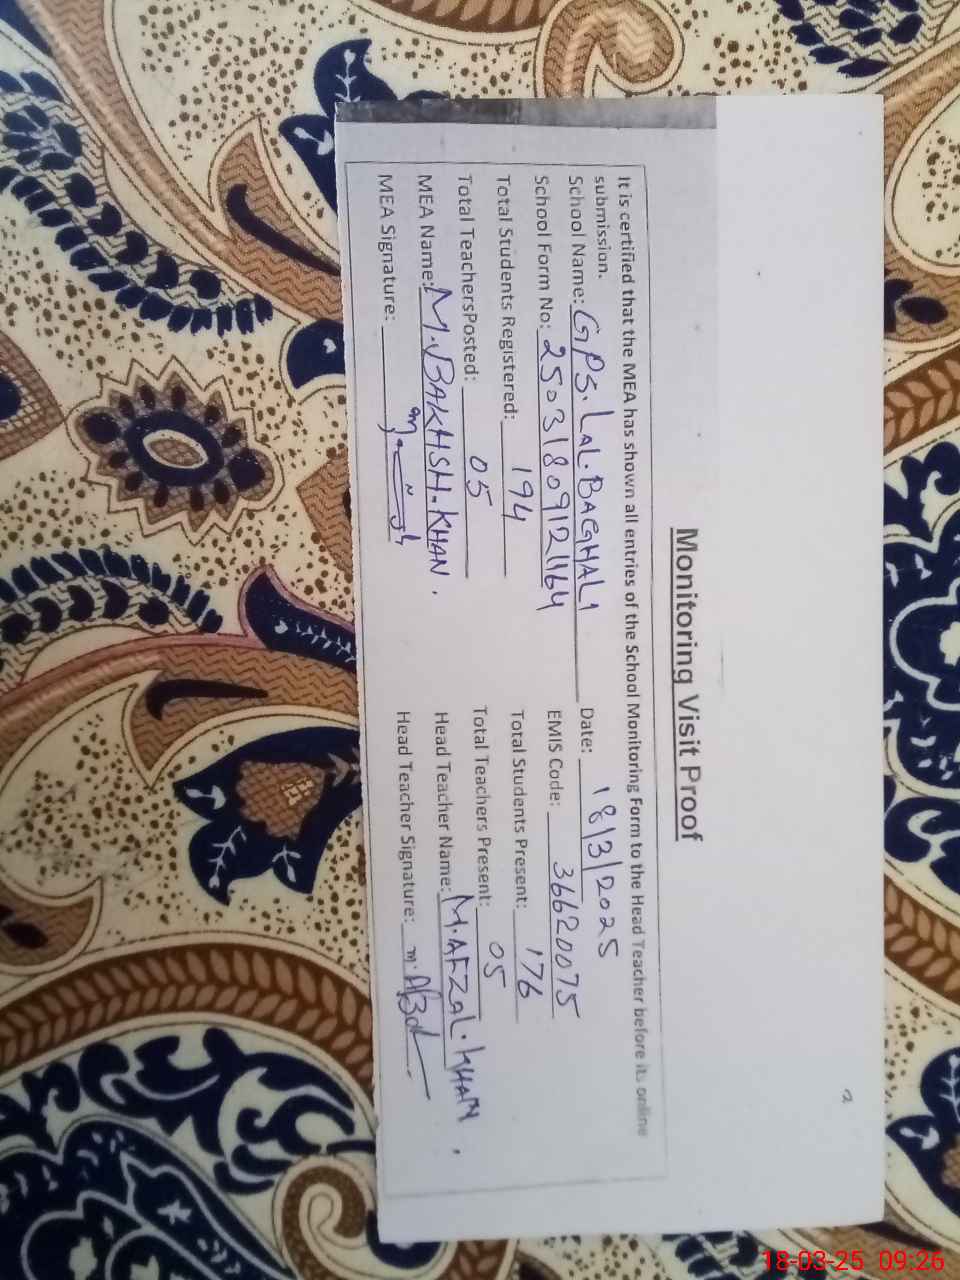 Monitoring Visit Proof
It is certified that the MEA has shown all entries of the School Monitoring Form to the Head Teacher before its online
submission.
School Name: GPS. LAL. BAGHALI Date: 18/3/2025
School Form No: 25031809121164 EMIS Code: 36620075
Total Students Registered: 194 Total Students Present: 176
Total TeachersPosted: 05 Total Teachers Present: 05
MEA Name: M. BAKHSH. KHAN. Head Teacher Name: M. AFZAL. KHAN.
MEA Signature: Head Teacher Signature:
18-03-25 09:26